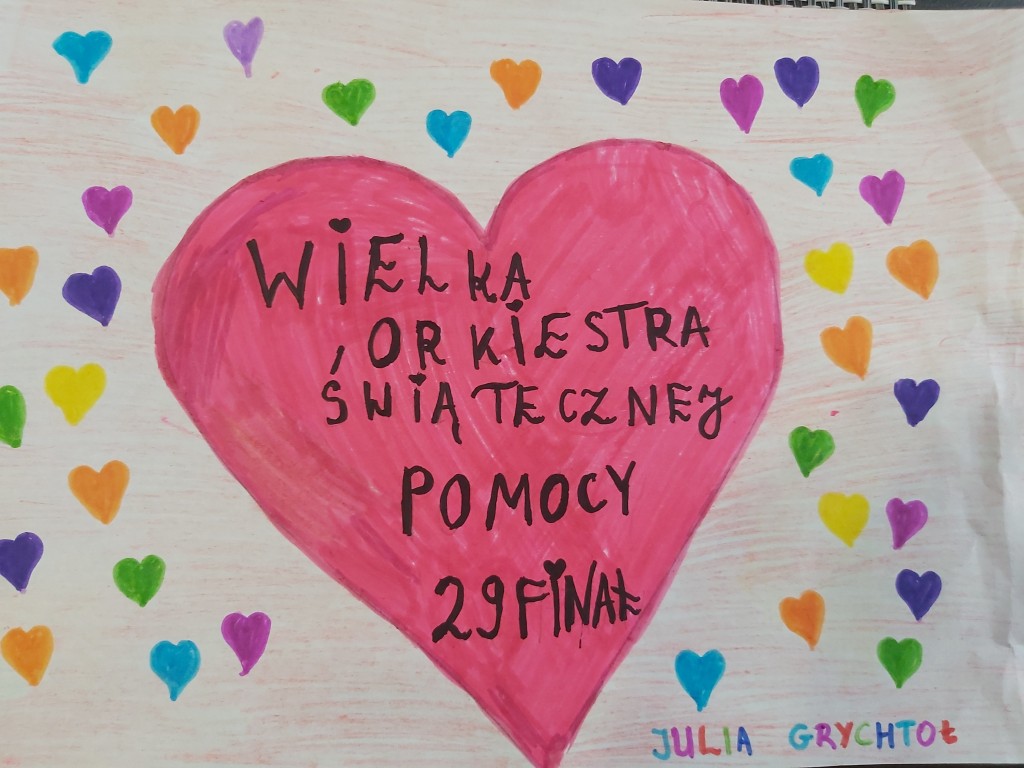 WiELKA
ORKiESTRA
ŚWiĄTECZNEJ
POMOCY
29 FiNAŁ
JULIA GRYCHTOŁ